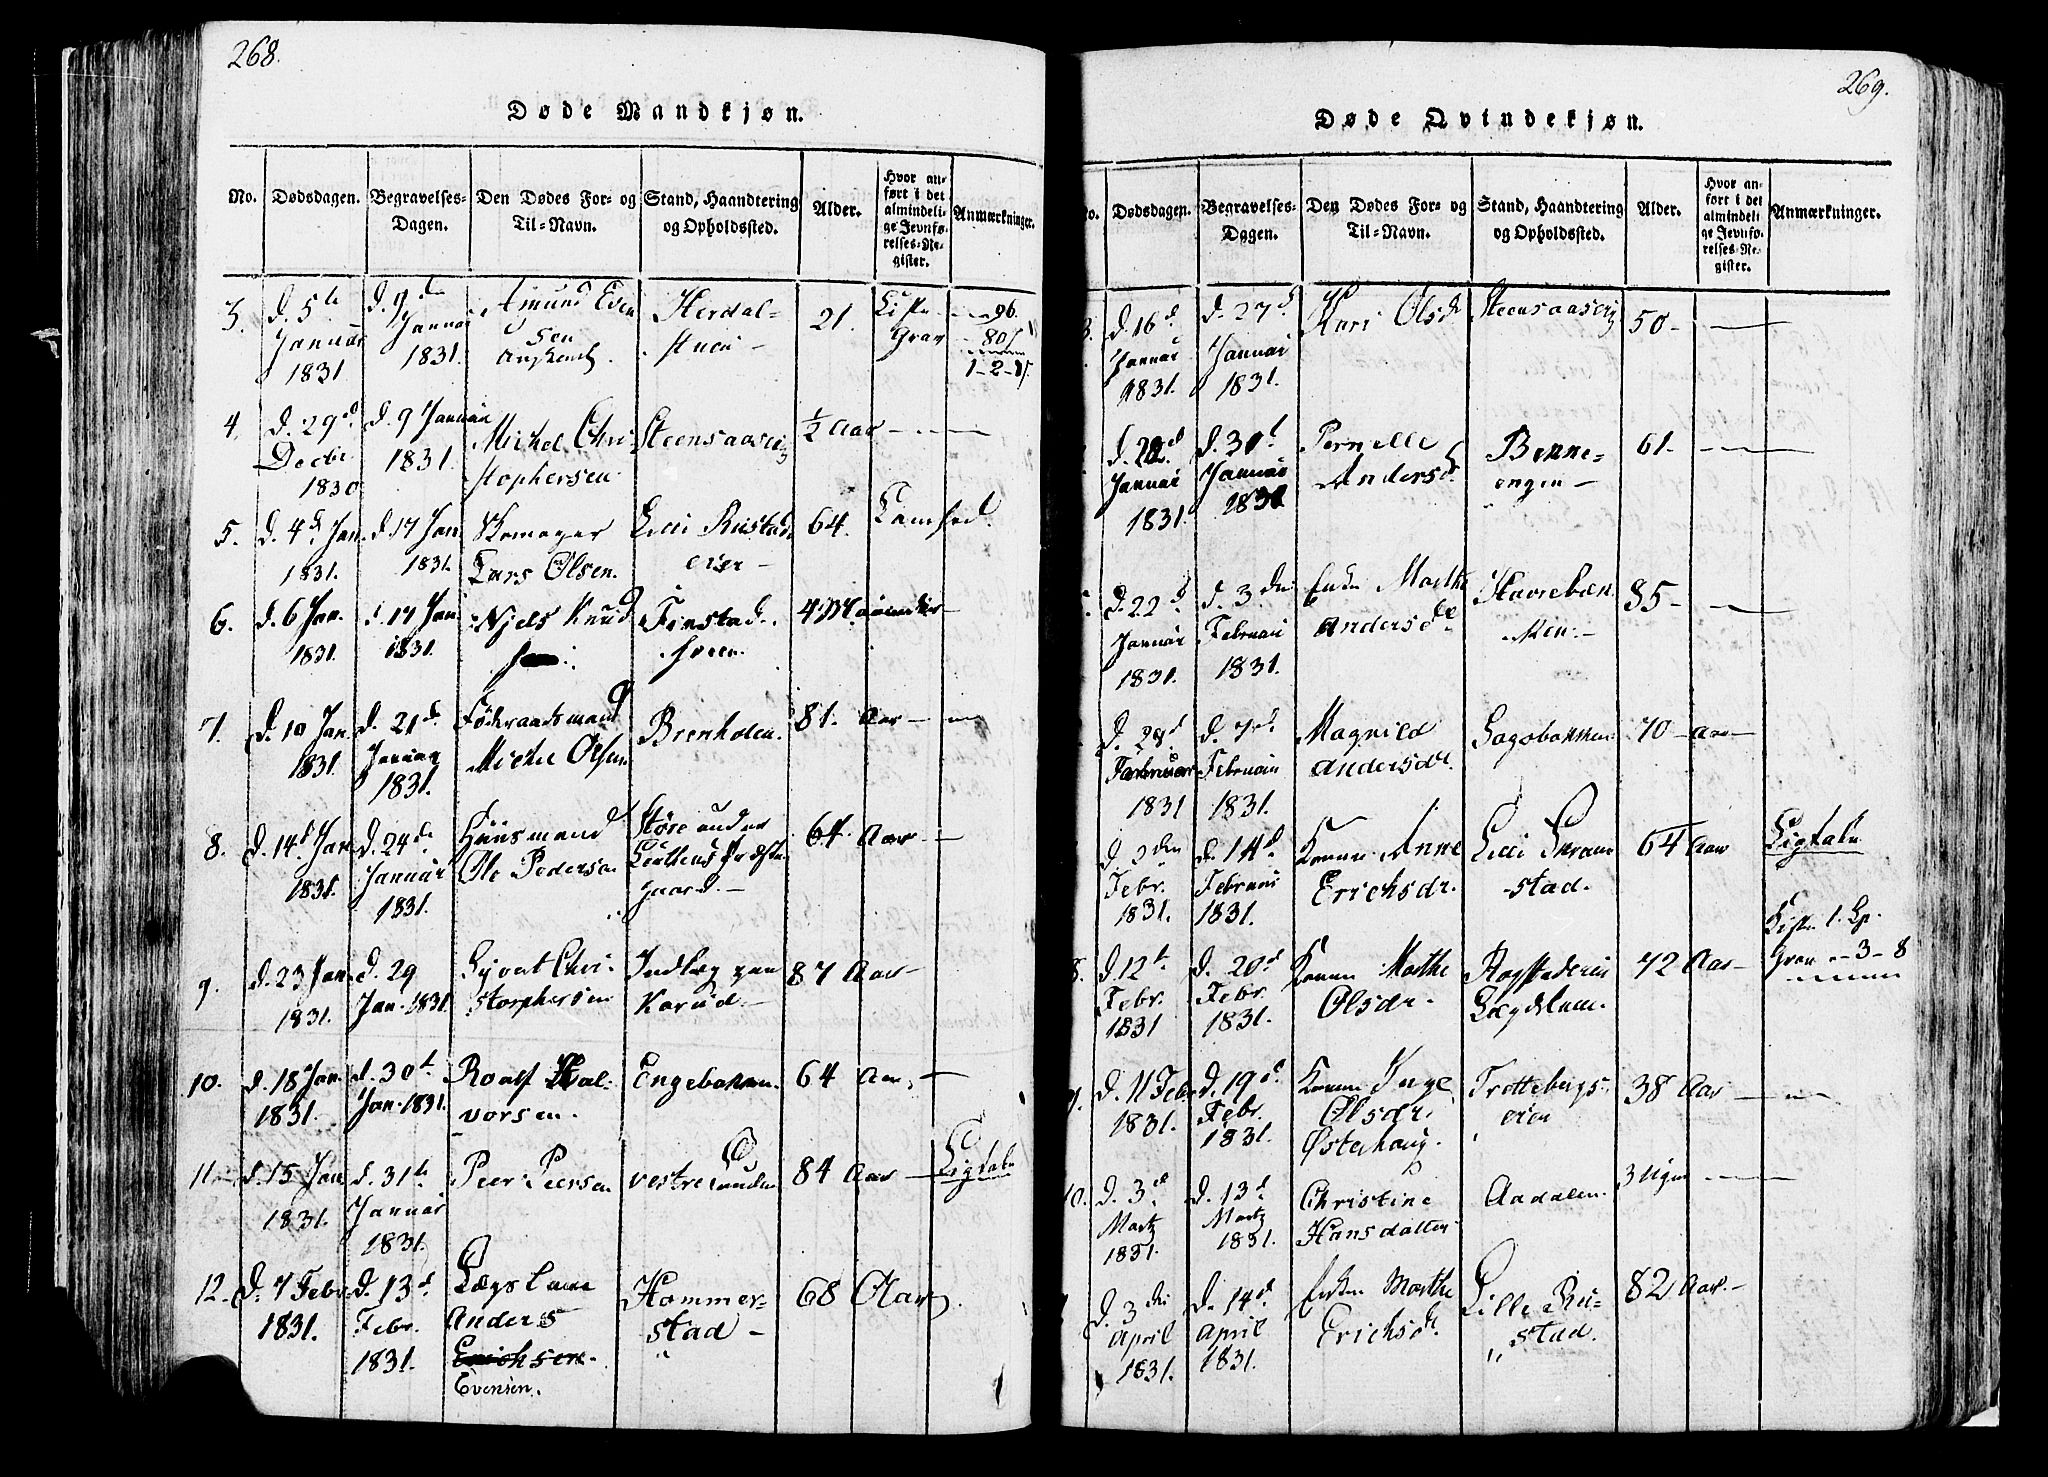 268.
Døde Mandkjøn.
No. Dødsdagen. Begravelses-Dagen. Den Dødes For- og Til-Navn. Stand, Haandtering og Opholdssted. Alder. Hvor anført i det almindelige Jevnførelses-Register. Anmærkninger.
3. d. 5te Januar 1831 d. 9de Januar 1831. Amund Evensen Herdalstuen 21. Grav 96. 80
4. d. 29d Decbr 1830 d. 9 Januar 1831. Michel Christophersen Steensaaseie 1/2 Aar
5. d. 4d Jan. 1831. d 17 Jan 1831. Lars Olsen. Rustad eier 64.
6. d. 6 Jan. 1831. d 17 Jan 1831. Njels Knud Finstad 4 Maaneder
7. d. 10 Jan. 1831. d. 21d. Januar 1831. Føderaadsmand Michel Olsen Brenholen. 81. Aar
8. d. 14d Jan 1831. d. 24de Januar 1831. Huusmand Ole Pedersen Støre under Præstegaard. 64. Aar
9. d. 23 Jan. 1831. d. 29 Jan. 1831. Syvert Christophersen Indlæg paa Korud 87 Aar
10. d. 18 Jan. 1831. d. 30te Jan. 1831. Roalf Halvorsen. Engebakken. 64 Aar
11. d. 15 Jan 1831. d. 31te Januar 1831. Peer Peersen vestre Lunden 84 Aar Ligtale
12. d. 7 Febr. 1831. d. 13d Febr. 1831. Lægslem Anders Erichsen. Evensen. Hommerstad 68 Aar.
269.
Døde Qvindekjøn.
No. Dødsdagen. Begravelses-Dagen. Den Dødes For- og Til-Navn. Stand, Haandtering og Opholdssted. Alder. Hvor anført i det almindelige Jevnførelses-Register. Anmærkninger.
3. d. 16d Januar 1831. d. 27d Januar 1831. Kari Olsdr Steensaaseie 50
d. 22d Januar 1831. d. 30t Januar 1831 Pernelle Andersdr. Benneengen 61.
d. 22d Januar 1831. d. 3den Februari 1831. Enke Marthe Andersdr 85
d. 28d Januar 1831 d. 7d Februari 1831. Magnild Andersdr. Sagabakken 70 Aar
d. 2den Febr. 1831. d. 14d. Februari 1831. Konen Anne Erichsdr. Lille Skramstad. 64 Aar Ligtale
8. d. 12t Febr. 1831 d. 20d Febr. 1831. Konen Marthe Olsdr. Lægdslem. 72 Aar Kiste 1. Sp. Grav 3-8
9. d. 11 Febr 1831. d. 19d. Febr. 1831. Konen Inge Olsdr. Østerhaug. Trottebergseien 38 Aar
10. d. 3d Martz 1831. d. 13d. Martz 1831. Christine Hansdatter Aadalen. 3 Uger
d. 3die April 1831. d. 14d. April 1831. Enken Marthe Erichsdr. Lille Rustad. 82 Aar.